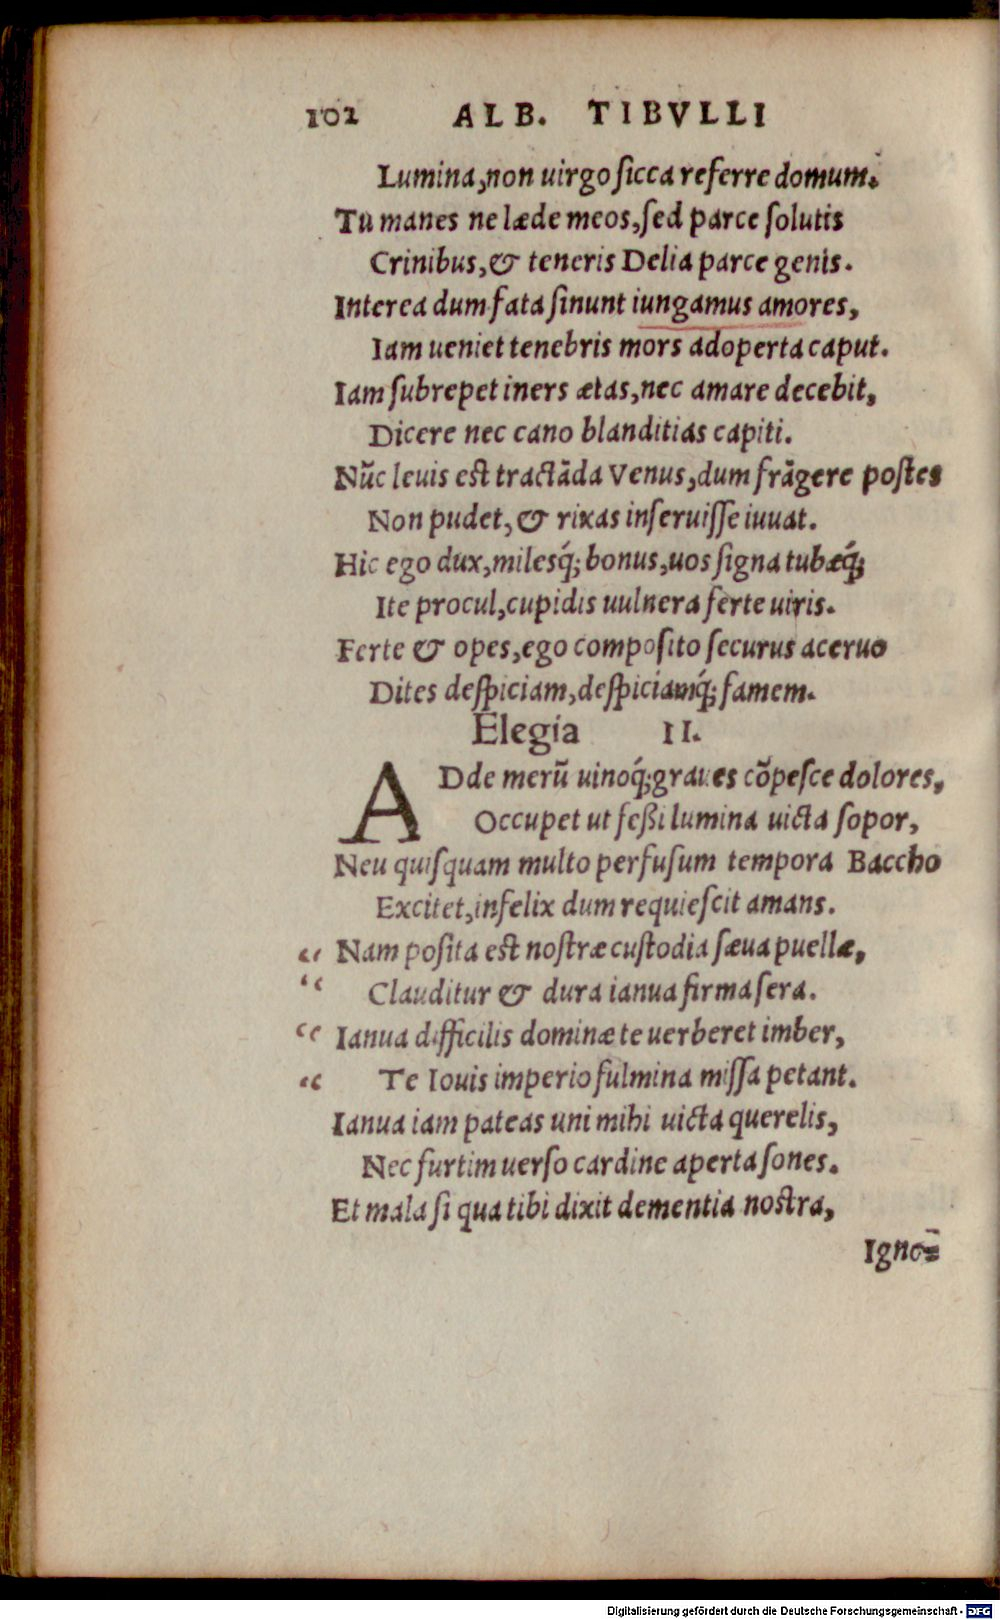 102 ALB. TIBVLLI
Lumina, non uirgo ſicca referre domum.
Tu manes ne læde meos, ſed parce ſolutis
Crinibus, & teneris Delia parce genis.
Interea dum fata ſinunt iungamus amores,
Iam ueniet tenebris mors adoperta caput.
Iam ſubrepet iners ætas, nec amare decebit,
Dicere nec cano blanditias capiti.
Nũc leuis eſt tractãda Venus, dum frãgere poſtes
Non pudet, & rixas inſeruiſſe iuuat.
Hic ego dux, milesq́; bonus, uos ſigna tubæq́;
Ite procul, cupidis uulnera ferte uiris.
Ferte & opes, ego compoſito ſecurus aceruo
Dites deſpiciam, deſpiciamq́; famem.
Elegia II.
ADde merũ uinoq́; graues cõpeſce dolores,
Occupet ut feßi lumina uicta ſopor,
Neu quiſquam multo perfuſum tempora Baccho
Excitet, infelix dum requieſcit amans.
“ Nam poſita eſt noſtræ cuſtodia ſæua puellæ,
“ Clauditur & dura ianua firma ſera.
“ Ianua difficilis dominæ te uerberet imber,
“ Te Iouis imperio fulmina miſſa petant.
Ianua iam pateas uni mihi uicta querelis,
Nec furtim uerſo cardine aperta ſones.
Et mala ſi qua tibi dixit dementia noſtra,
Igno=
Digitalisierung gefördert durch die Deutsche Forschungsgemeinschaft - DFG